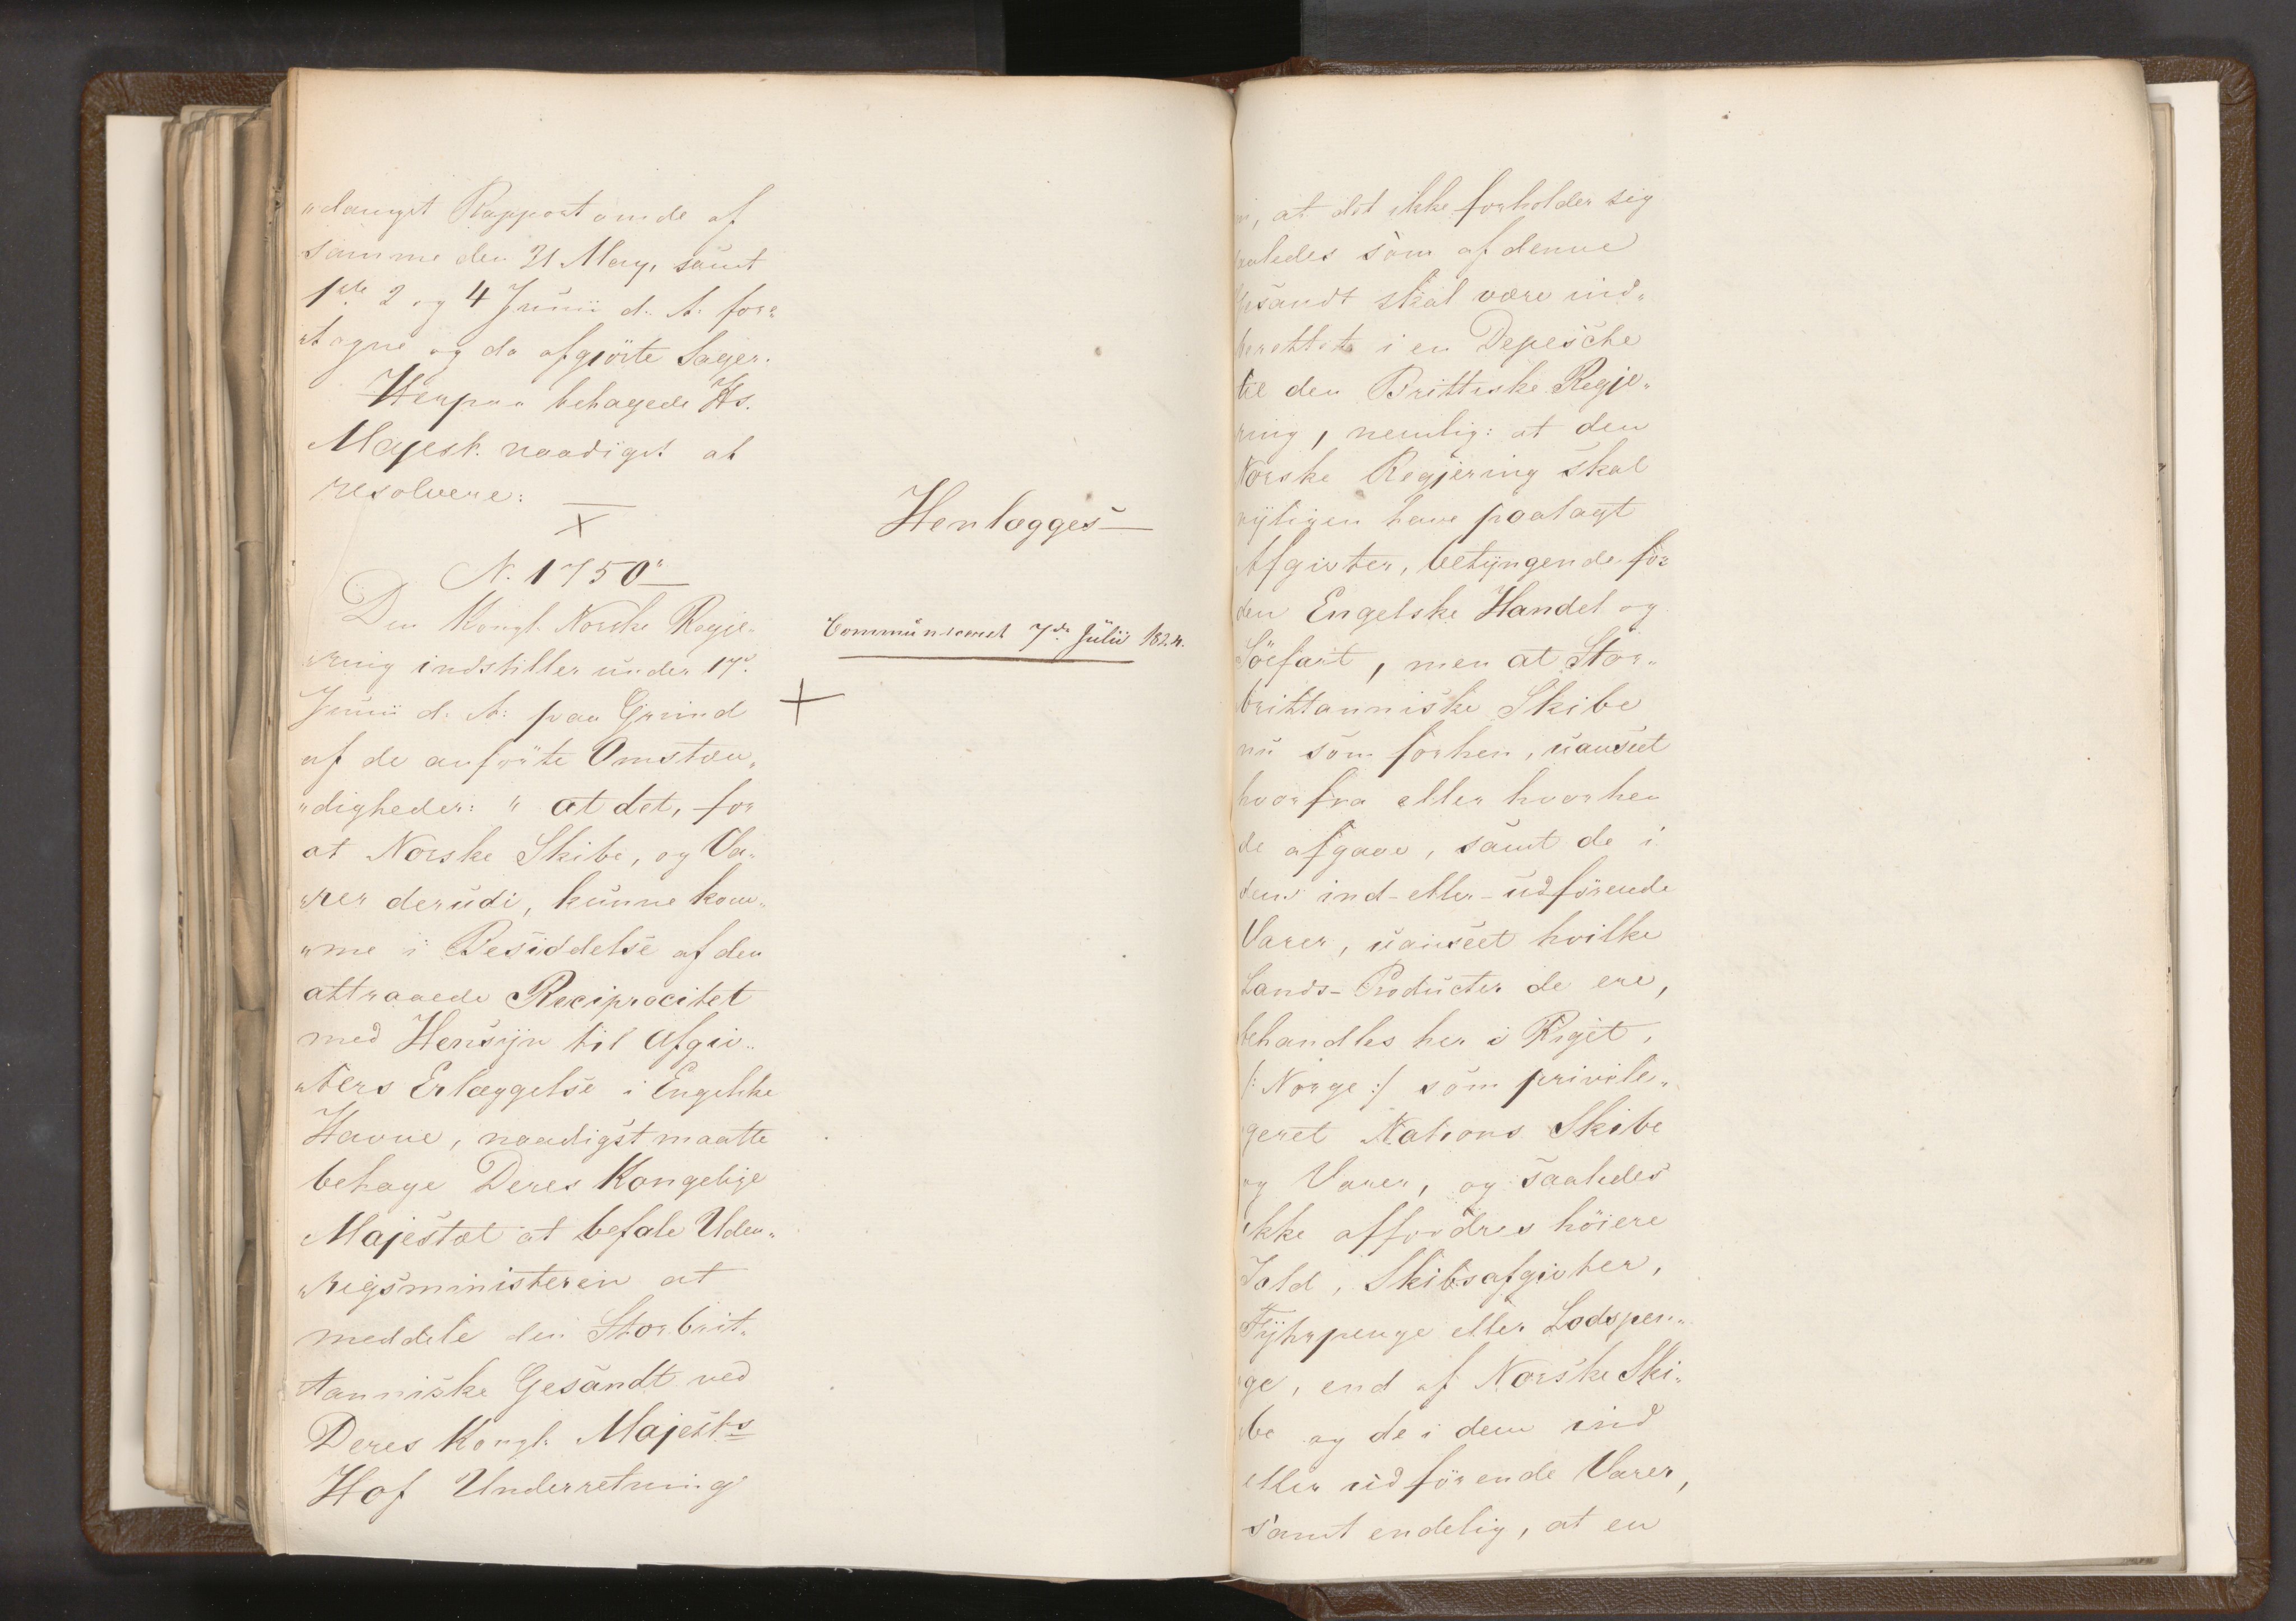 "danigst Rapport om de af
samme den 21 May, samt
1ste 2 og 4 Junii d. A. fore-
"tagne og da afgjörte Sager.
Herpaa behagede Hs.
Majest. naadigst at
resolvere:
Henlægges
N. 1750
Den Kongl. Norske Regje-
"ring indstiller under 17de
Junii d. A: paa Grund
af de anförte Omstæn-
"digheder: " at det, for
at Norske Skibe, og Va-
"rer derudi, kunne kom-
"me i Besiddelse af den
attraaede Reciprocitet
med Hensÿn til Afgiv-
"ters Erlæggelse i Engelske
Havne, naadigst maatte
behage Deres Kongelige
Majestæt at befale Uden-
"rigsministeren at
meddele den Storbrit-
tanniske Gesandt ved
Deres Kongl. Majests
Hof Underretning
Communiceret 7de Julii 1824.
, at det ikke forholder sig
saaledes som af denne
Gesandt skal være ind-
berettet i en Depesche
til den Brittiske Regje-
ring, nemlig: at den
Norske Regjering skal
nÿligen have paalagt
Afgivter, betÿngende for
den Engelske Handel og
Söefart, men at Stor-
brittanniske Skibe
nu som forhen, uanseet
hvorfra eller hvorhen
de afgaae, samt de i
dem ind- eller udförende
Varer, uanseet hvilke
Lands-Producter de ere,
behandles her i Riget,
/: Norge :/ som privile-
geret Nations Skibe
og Varer, og saaledes
ikke affordres höiere
Told, Skibsafgivter,
Fÿhrpenge eller Lodspen-
ge, end af Norske Ski-
be og de i dem ind
eller udförende Varer,
samt endelig, at en